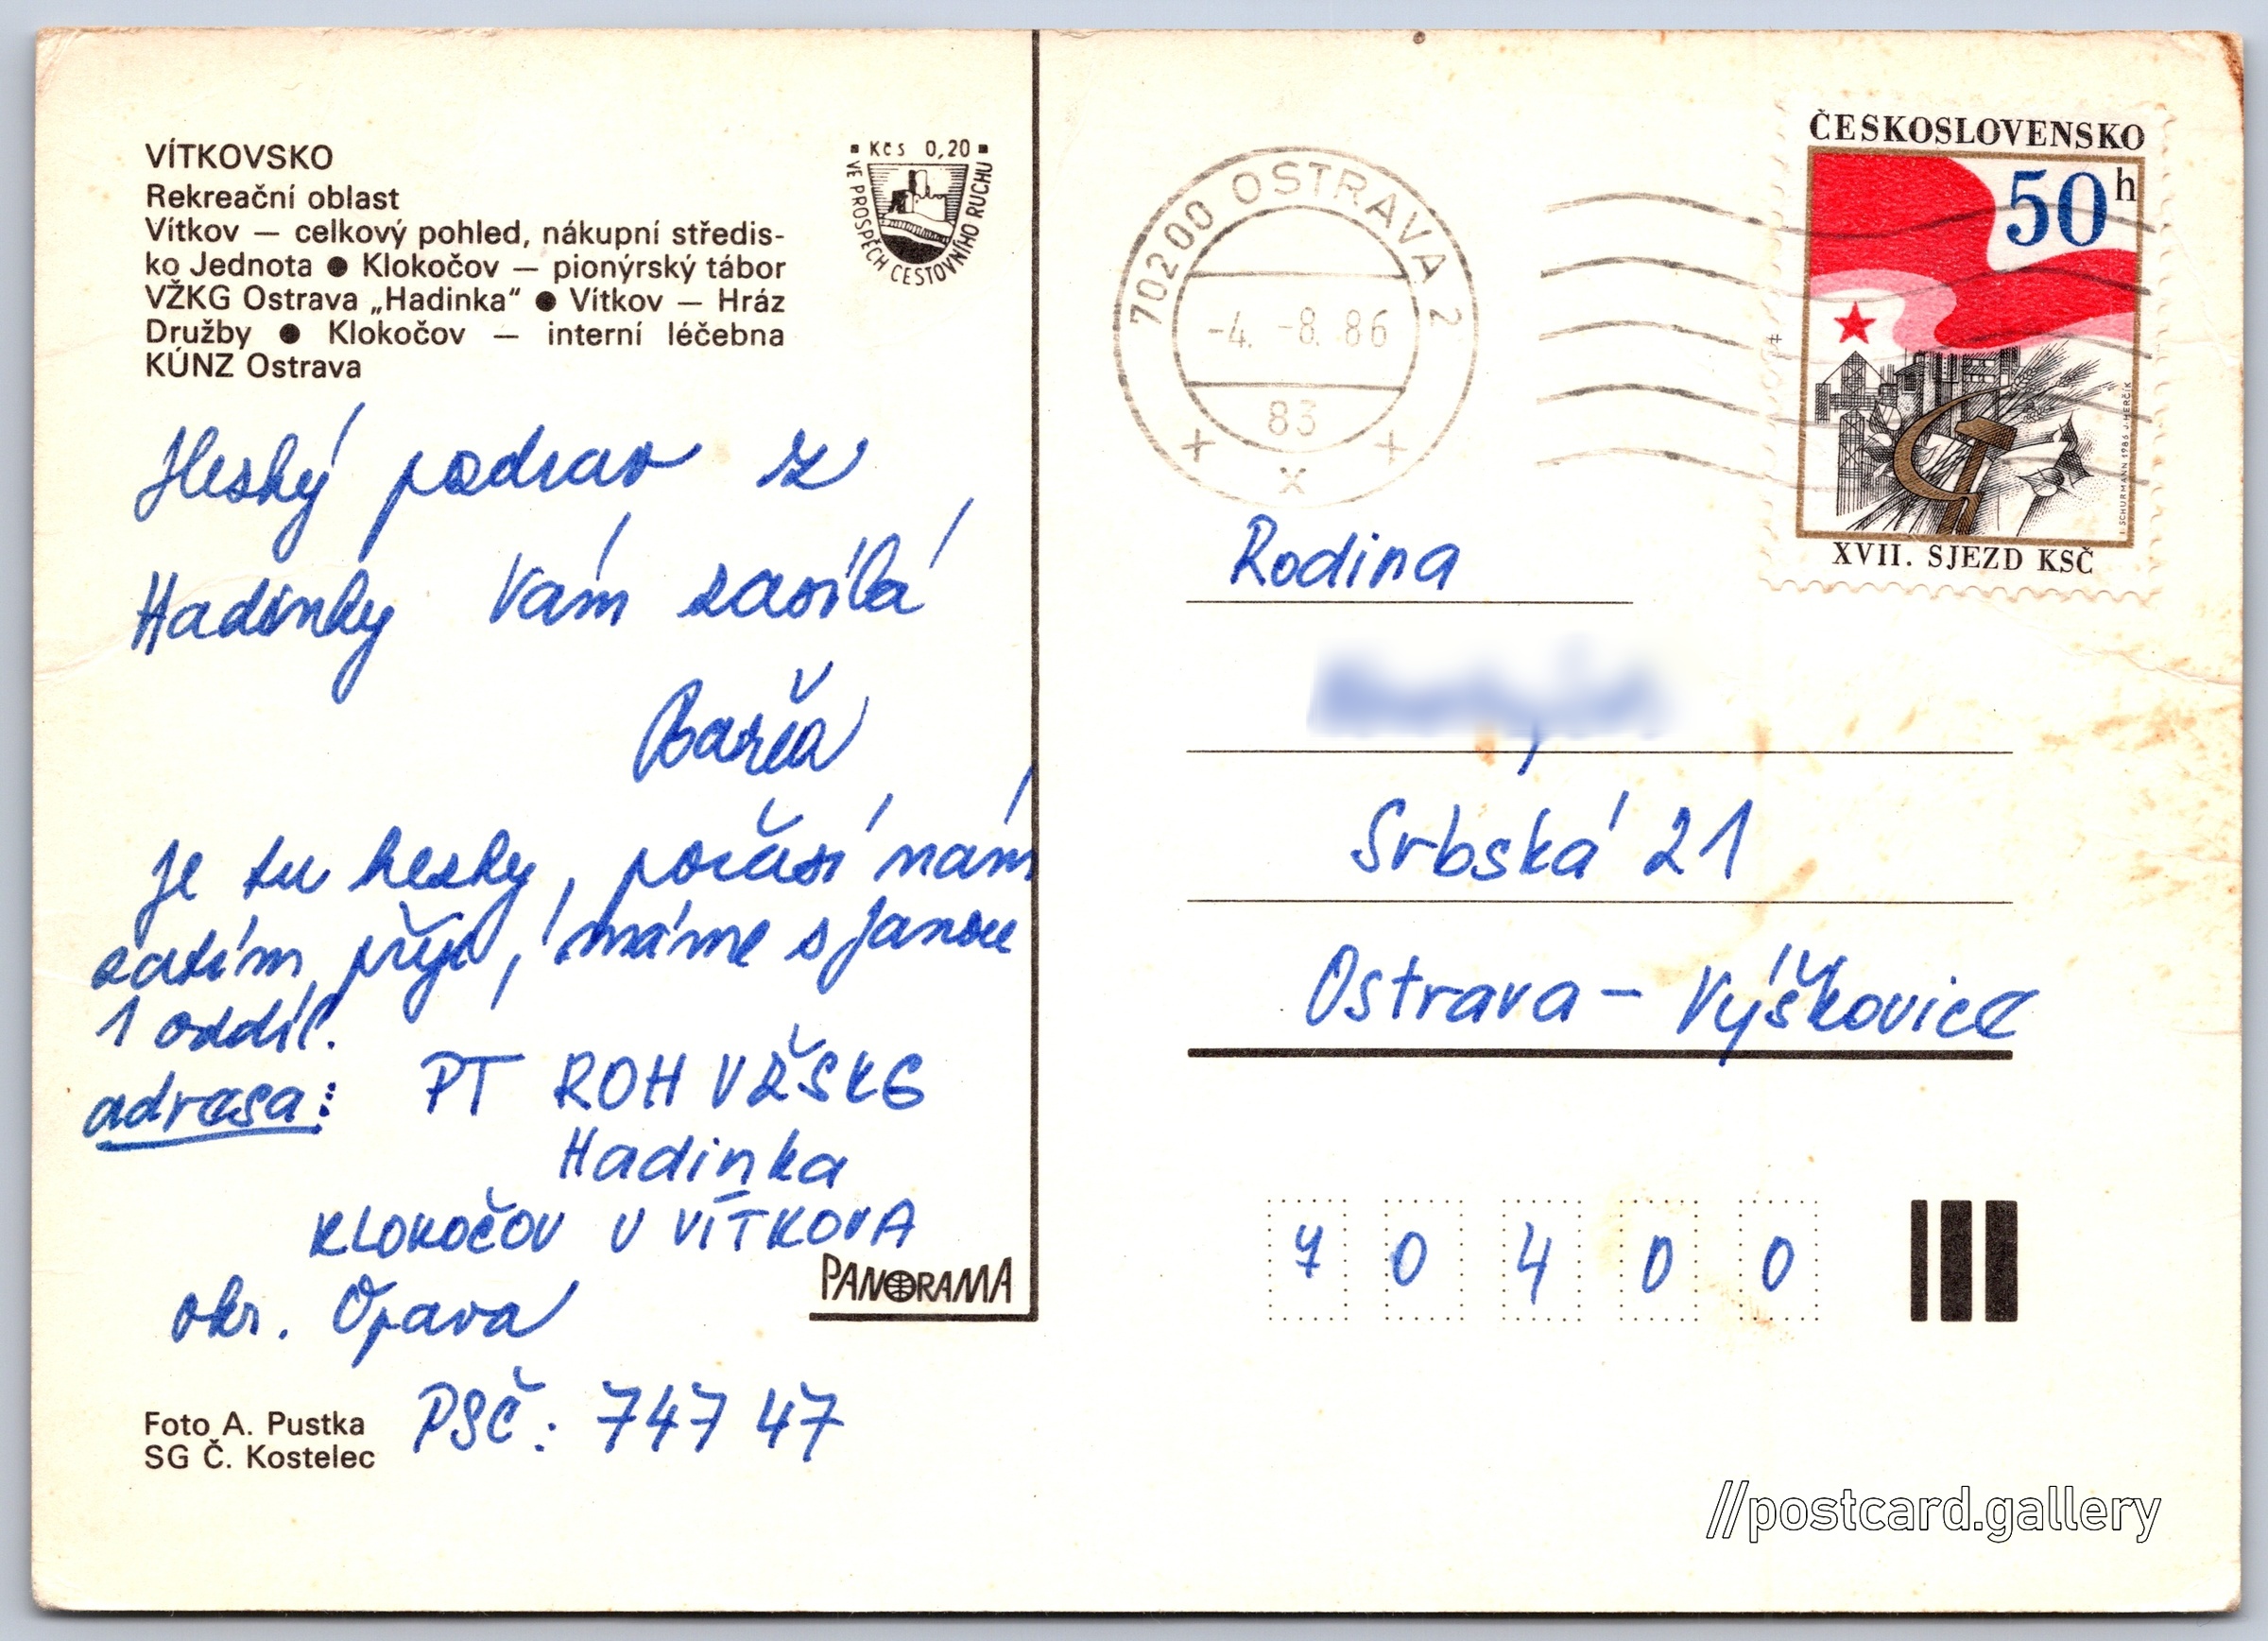 VÍTKOVSKO
Rekreační oblast
Vítkov — celkový pohled, nákupní středis-
ko Jednota ● Klokočov — pionýrský tábor
VŽKG Ostrava „Hadinka“ ● Vítkov — Hráz
Družby ● Klokočov — interní léčebna
KÚNZ Ostrava
Kčs 0,20
VE PROSPĚCH CESTOVNÍHO RUCHU
Heský pozdrav z
Hadinky Vám zasílá
Je tu hezky, počasí nám
zatím přeje, máme s Janou
1 oddíl.
adresa: PT ROH VŽSKG
Hadinka
KLOKOČOV U VÍTKOVA
okr. Opava
PSČ: 747 47
PANORAMA
Foto A. Pustka
SG Č. Kostelec
70200 OSTRAVA 2
-4. -8. 86
83
ČESKOSLOVENSKO
50h
I. SCHURMANN 1986 J. HERČÍK
XVII. SJEZD KSČ
Rodina
Srbská 21
Ostrava – Výškovice
70400
//postcard.gallery